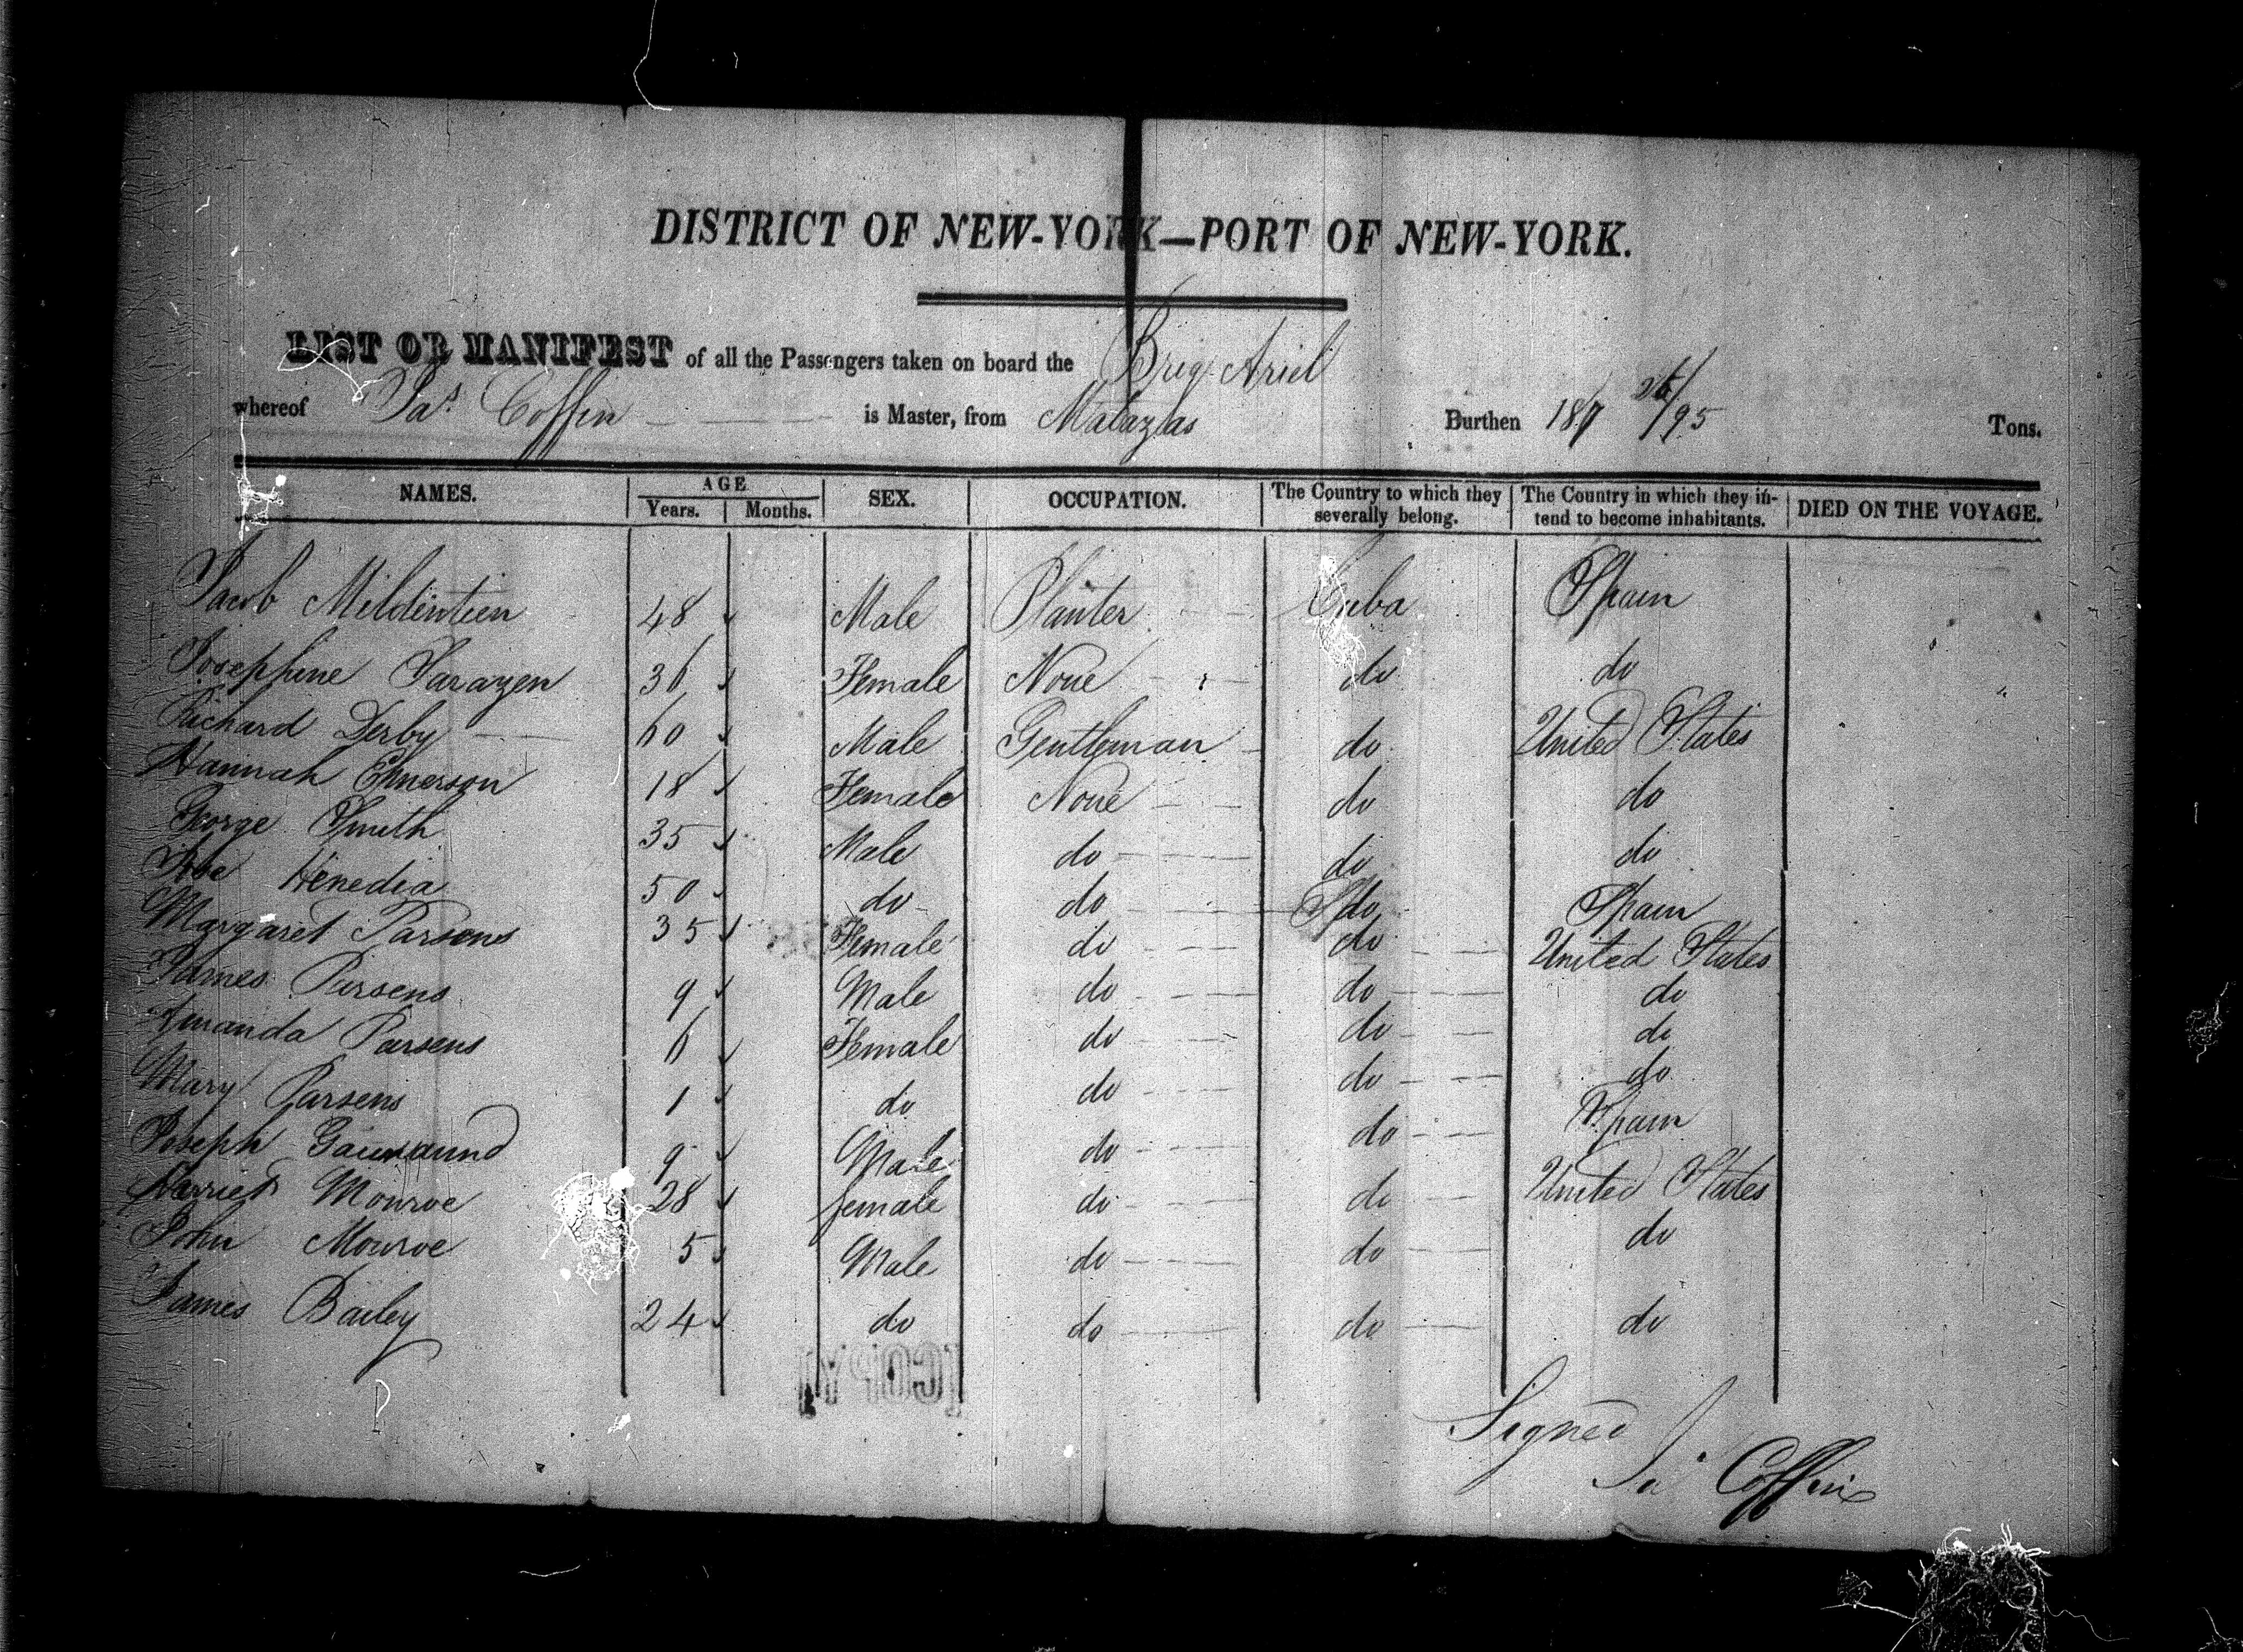 DISTRICT OF NEW-YORK—PORT OF NEW-YORK.
LIST OR MANIFEST of all the Passengers taken on board the Brig Ariel
whereof Jas. Coffin is Master, from Matazas Burthen 187 26/95 Tons.
NAMES. AGE Years. Months. SEX. OCCUPATION. The Country to which they severally belong. The Country in which they intend to become inhabitants. DIED ON THE VOYAGE.
Jacob 48 Male Planter Cuba Spain
Josephine Sarazen 36 Female None do do
Richard Derby 60 Male Gentleman do United States
Hannah Emerson 18 Female None do do
George Smith 35 Male do do do
Henedia 50 do do do Spain
Margaret Parsons 35 Female do do United States
James Parsens 9 Male do do do
Amanda Parsens 6 Female do do do
Mary Parsens 1 do do do do
Joseph 9 Male do do Spain
Harriet Monroe 28 female do do United States
John Monroe 5 Male do do do
James Bailey 24 do do do do
[COPY]
Signed
Jas Coffin